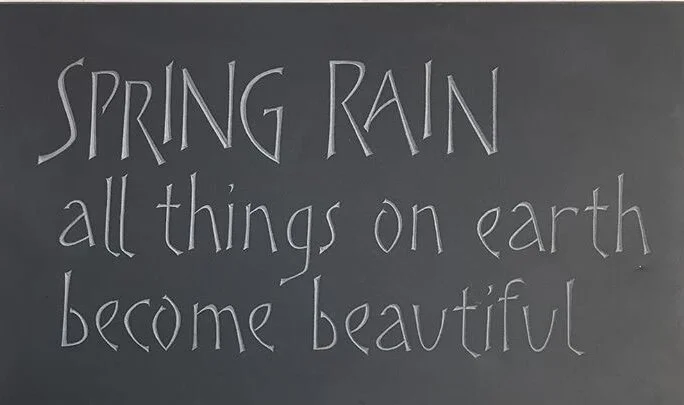 SPRING RAIN
all things on earth
become beautiful